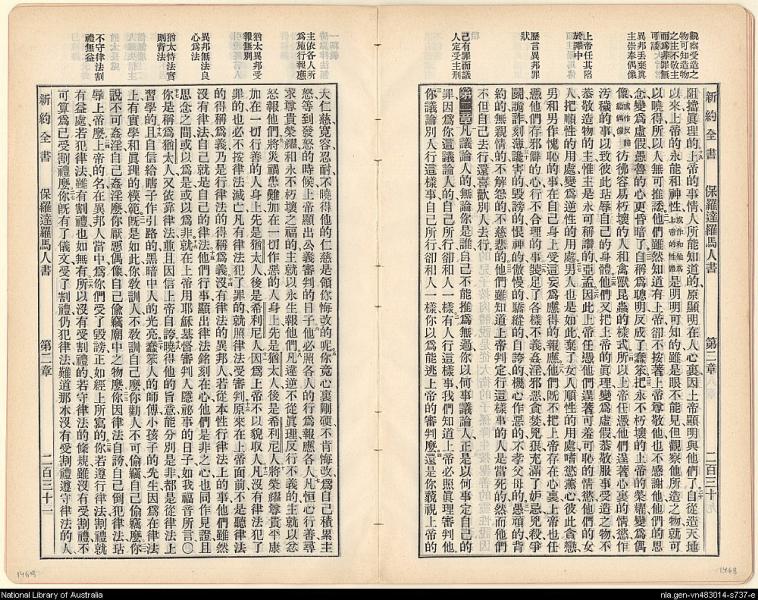 觀察受造之
物可知造物
之主不敬主
而為非罪無
可諉
異邦丟棄眞
主崇奉偶像
上帝任其陷
於罪中
歷言異邦罪
狀
己有罪而議
人定受主刑
新約全書 保羅達羅馬人書 第二章 二百三十
阻擋眞理的上帝的事情人所能知道的原顯明在人心裏因上帝顯明與他們了自從造天地
以來上帝的永能和神性是明明可知的雖是眼不能見但觀察他所造之物就可
以曉得所以人無可推諉他們雖然知道有上帝卻不按著上帝尊敬他也不感謝他他們的思
念變為虛假愚蠢的心更昏暗了自稱為聰明反成了蠢笨把永不朽壞的上帝的榮耀變為偶
像彷彿容易朽壞的人和禽獸昆蟲的樣式所以上帝任憑他們逞著心裏的情慾作
汚穢的事以致彼此玷辱自己的身體他們又把上帝的眞理變為虛假恭敬服事受造之物不
恭敬造物的主惟主是永可稱讚的亞孟因此上帝任憑他們逞著可羞可恥的情慾他們的女
人把順性的用處變為逆性的用處男人也是如此棄了女人順性的用處嗜慾薰心彼此貪戀
男和男作愧恥的事在自己身上受這妄為應得的報應他們既不把上帝存在心裏上帝也任
憑他們存邪僻的心行不合理的事裝足了各樣不義姦淫邪惡貪婪兇狠又滿了妒忌兇殺爭
鬭詭詐刻薄讒害的毀謗的恨神的傲慢的驕縱的自誇的機心作惡的不孝父母的愚頑的背
約的無親情的不解怨的不慈悲的他們雖然知道上帝判定行這樣事的人是當死的然而他們
不但自己去行還喜歡別人去行
第二章凡議論人的無論你是誰自己不能推諉無過你以何事議論人正是以何事定自己的
罪因為你這議論人的自己所行卻和人一樣雖有人行這樣事我們知道上帝必照眞理審判他
你議論別人行這樣事自己所行卻和人一樣你以為能逃上帝的審判麼還是你藐視上帝的
主依各人所
為施行報應
猶太異邦受
報無別
異邦無法良
心為法
猶太恃法實
則背法
不守律法割
禮無益
大仁慈寬容忍耐不曉得他的仁慈是領你悔改的呢你竟心裏剛硬不肯悔改為自己積累主
怒等到發怒的時候上帝顯出公義審判的日子他必照各人的行為報應各人凡恒心行善尋
求尊貴榮耀和永不朽壞之福的主就以永生報他們凡違逆不從眞理反行不義的主就以忿
怒報他們將災禍患難加在一切作惡的人身上先是猶太人後是希利尼人將榮耀尊貴平康
加在一切行善的人身上先是猶太人後是希利尼人因為上帝不以貌取人凡沒有律法犯了
罪的也必不按律法滅亡凡有律法犯了罪的就照律法受審判原來在上帝面前不是聽律法
的得稱為義乃是行律法的得稱為義沒有律法的異邦人若從本性行律法上的事他們雖然
沒有律法自己就是自己的律法他們行事顯出律法銘刻在心他們是非之心也同作見證且
思念之間或以為是或以為非就在上帝用耶穌基督審判人隱祕事的日子如我福音所言〇
你是稱為猶太人又依靠律法並且因信上帝自誇曉得他的旨意能分別是非都是從律法上
習學的且自信給瞎子作引路的黑暗中人的光亮蠢笨人的師傅小孩子的先生因為在律法
上有實學和眞理的模範既是如此你敎訓人不敎訓自己麼你勸人不可偷竊自己偷竊麼你
說不可姦淫自己姦淫麼你厭惡偶像自己偷竊廟中之物麼你因律法自誇自己倒犯律法玷
辱上帝麼上帝的名在異邦人當中為你們受了毀謗正如經上所寫的你若遵行律法割禮就
有益處若犯律法雖有割禮也如無有所以沒有受割禮的若守律法的條規雖沒有受割禮不
可算為已受割禮麼你既有了儀文受了割禮仍犯律法難道那本沒有受割禮遵守律法的人
新約全書 保羅達羅馬人書 第二章 二百三十一
National Library of Australia
nla.gen-vn483014-s737-e